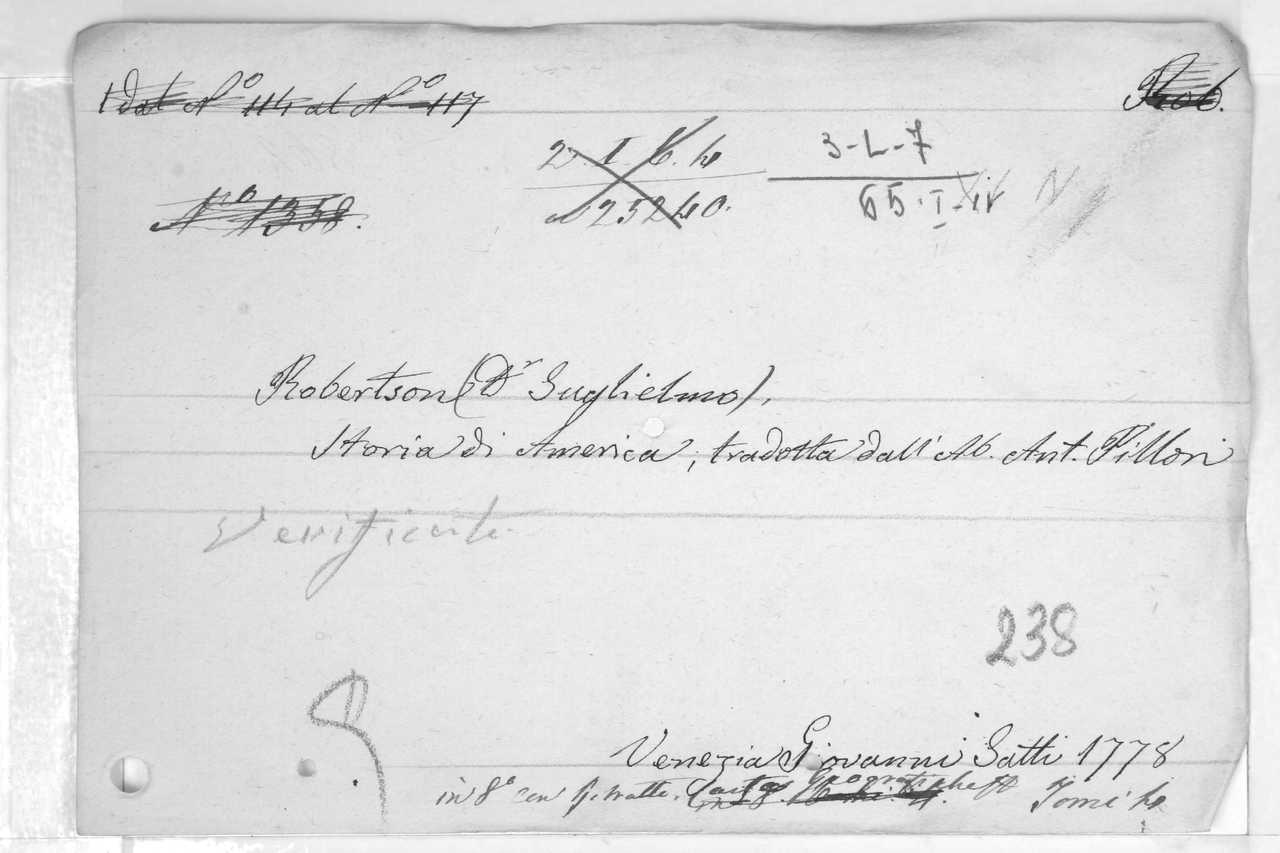 dal No 114 al No 117
Rob.
2. I. C. 4
3-L-7
No 1358.
25240.
65-I-
N
Robertson (Dr Guglielmo),
Storia di America, tradotta dall' Ab. Ant. Pillori
Verificato
238
Venezia Giovanni Gatti 1778
in 8o con Ritratto. Carte geografiche Tomi 4